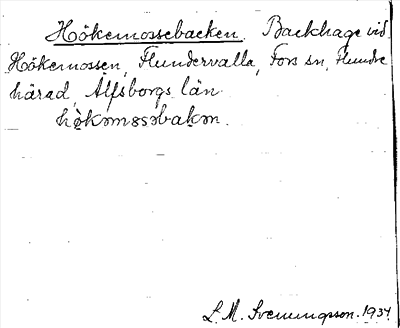 Hökemossebacken. Backhage vid
Hökemossen, Flundervalla, Fors sn, Flundre
härad, Älfsborgs län.
hökəmɔssəbakən.
L. M. Svenungsson. 1934.